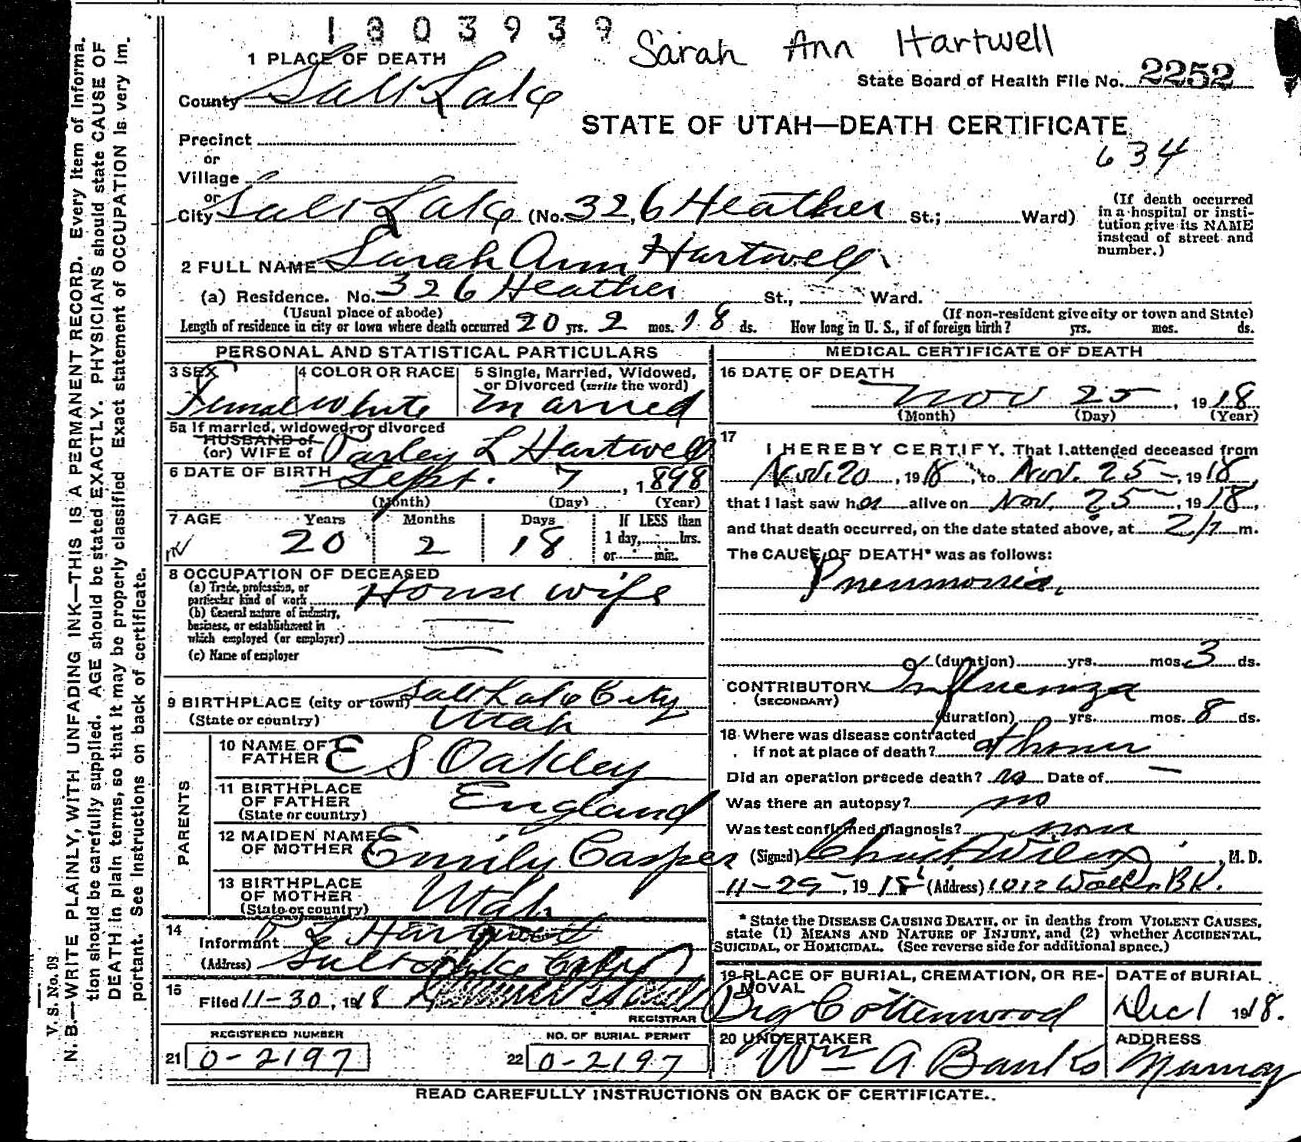 1803939
Sarah Ann Hartwell
State Board of Health File No. 2252
1 PLACE OF DEATH
County Salt Lake
STATE OF UTAH—DEATH CERTIFICATE
634
Precinct
or
Village
or
City Salt Lake (No. 326 Heather St.; Ward)
(If death occurred in a hospital or institution give its NAME instead of street and number.)
2 FULL NAME Sarah Ann Hartwell
(a) Residence. No. 326 Heather St., Ward.
(Usual place of abode) (If non-resident give city or town and State)
Length of residence in city or town where death occurred 20 yrs. 2 mos. 18 ds. How long in U. S., if of foreign birth? yrs. mos. ds.
PERSONAL AND STATISTICAL PARTICULARS
3 SEX 4 COLOR OR RACE 5 Single, Married, Widowed, or Divorced (write the word)
Female White Married
5a If married, widowed, or divorced
HUSBAND of
(or) WIFE of Parley L Hartwell
6 DATE OF BIRTH Sept. 7, 1898
(Month) (Day) (Year)
7 AGE Years Months Days If LESS than
20 2 18 1 day, hrs.
or min.
8 OCCUPATION OF DECEASED
(a) Trade, profession, or
particular kind of work House wife
(b) General nature of industry,
business, or establishment in
which employed (or employer)
(c) Name of employer
9 BIRTHPLACE (city or town) Salt Lake City
(State or country) Utah
PARENTS
10 NAME OF FATHER E S Oakley
11 BIRTHPLACE OF FATHER England
(State or country)
12 MAIDEN NAME OF MOTHER Emily Casper
13 BIRTHPLACE OF MOTHER Utah
(State or country)
14
Informant P L Hartwell
(Address) Salt Lake City
15
Filed 11-30, 1918
REGISTRAR
REGISTERED NUMBER NO. OF BURIAL PERMIT
21 0-2197 22 0-2197
MEDICAL CERTIFICATE OF DEATH
16 DATE OF DEATH
Nov 25, 1918
(Month) (Day) (Year)
17
I HEREBY CERTIFY, That I attended deceased from
Nov. 20, 1918, to Nov. 25-, 1918,
that I last saw her alive on Nov. 25-, 1918,
and that death occurred, on the date stated above, at m.
The CAUSE OF DEATH* was as follows:
Pneumonia.
(duration) yrs. mos. 3 ds.
CONTRIBUTORY Influenza
(SECONDARY)
(duration) yrs. mos. 8 ds.
18 Where was disease contracted
if not at place of death? at home
Did an operation precede death? no Date of —
Was there an autopsy? no
Was test confirmed diagnosis?
(Signed) M. D.
11-29, 1918 (Address) 1012 Walker BK.
* State the DISEASE CAUSING DEATH, or in deaths from VIOLENT CAUSES,
state (1) MEANS AND NATURE OF INJURY, and (2) whether ACCIDENTAL,
SUICIDAL, or HOMICIDAL. (See reverse side for additional space.)
19 PLACE OF BURIAL, CREMATION, OR REMOVAL DATE of BURIAL
Big Cottenwood Dec 1 1918.
20 UNDERTAKER ADDRESS
Wm A Banks Murray
READ CAREFULLY INSTRUCTIONS ON BACK OF CERTIFICATE.
V. S. No. 98
N. B.—WRITE PLAINLY, WITH UNFADING INK—THIS IS A PERMANENT RECORD. Every item of informa-
tion should be carefully supplied. AGE should be stated EXACTLY. PHYSICIANS should state CAUSE OF
DEATH in plain terms, so that it may be properly classified. Exact statement of OCCUPATION is very im-
portant. See instructions on back of certificate.